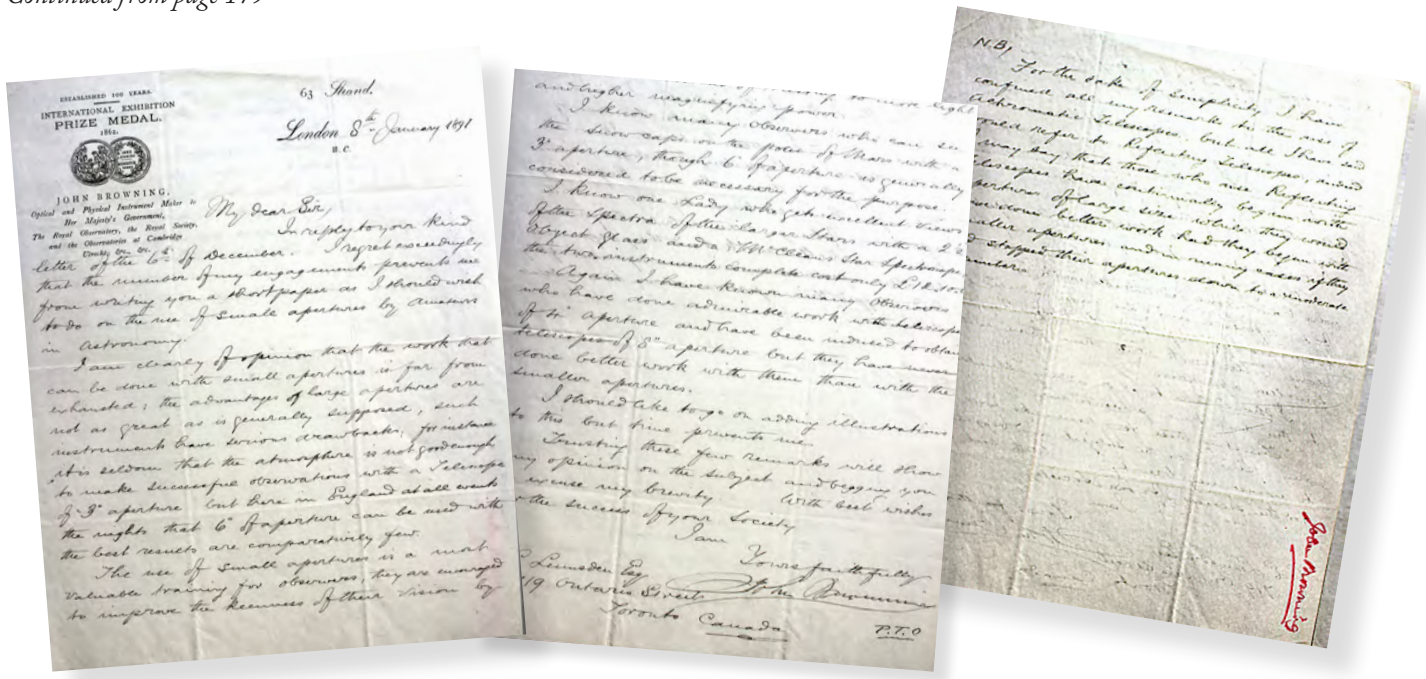 Continued from page 179
ESTABLISHED 100 YEARS.
INTERNATIONAL EXHIBITION
PRIZE MEDAL.
1862.
JOHN BROWNING,
Optical and Physical Instrument Maker to
Her Majesty's Government,
The Royal Observatory, the Royal Society,
and the Observatories of Cambridge
63 Strand.
London 8th January 1891
B.C.
My dear Sir,
In reply to your kind
letter of the 6th of December. I regret exceedingly
that the number of my engagements prevents me
from writing you a short paper as I should wish
to do on the use of small apertures by amateurs
in astronomy.
I am clearly of opinion that the work that
can be done with small apertures is far from
exhausted; the advantages of large apertures are
not as great as is generally supposed, such
instruments have serious drawbacks, for instance
it is seldom that the atmosphere is not good enough
to make successful observations with a Telescope
of 3" aperture but here in England at all events
the nights that 6" of aperture can be used with
the best results are comparatively few.
The use of small apertures is a most
valuable training for observers, they are
to improve the keenness of their vision by
to more light
and higher magnifying power.
I know many observers who can see
the snow caps on the poles of Mars with a
3" aperture, though 6" of aperture is generally
considered to be necessary for the purpose.
I know one Lady who gets excellent views
of the spectra of the larger stars with a 2"
object glass and a McCleans Star Spectroscope
the two instruments complete cost only
Again I have known many observers
who have done admirable work with telescopes
of 4" aperture and have been induced to obtain
telescopes of 8" aperture but they have never
done better work with them than with the
smaller apertures.
I should like to go on adding illustrations
to this but time prevents me.
Trusting these few remarks will show
my opinion on the subject and begging you
excuse my brevity With best wishes
for the success of your Society
I am
Yours faithfully
John Browning
Lumsden Esq
Ontario Street
Toronto Canada
P.T.O
N.B.,
For the sake of simplicity I have
confined all my remarks to the use of
Achromatic Telescopes, but all I have said
would refer to Reflecting Telescopes, indeed
may say that those who use Reflecting
Telescopes have continually begun with
apertures of large size while they would
have done better work had they began with
smaller apertures and in many cases if they
had stopped their apertures down to a moderate
John Browning